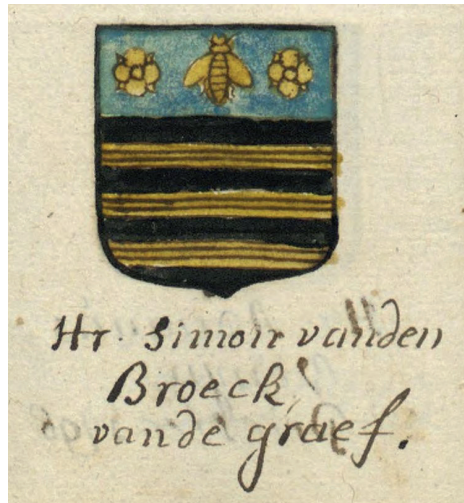 Hr. Simon vanden
Broeck,
vande graef.